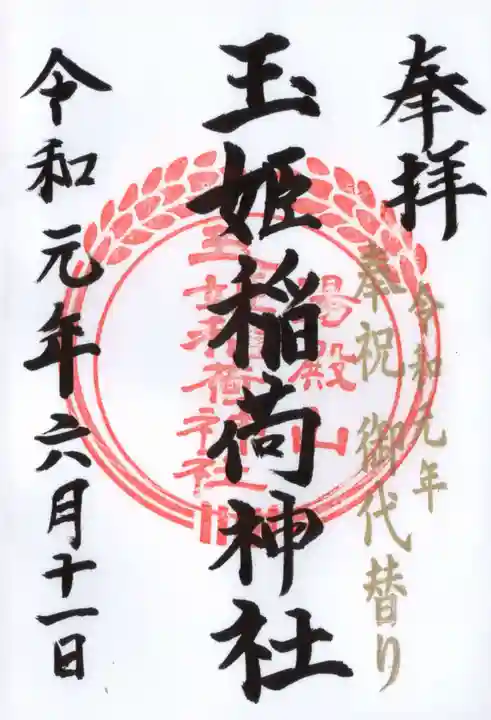 奉拝
令和元年
奉祝 御代替り
玉姫稲荷神社
湯殿山
玉姫稲荷神社
令和元年六月十一日